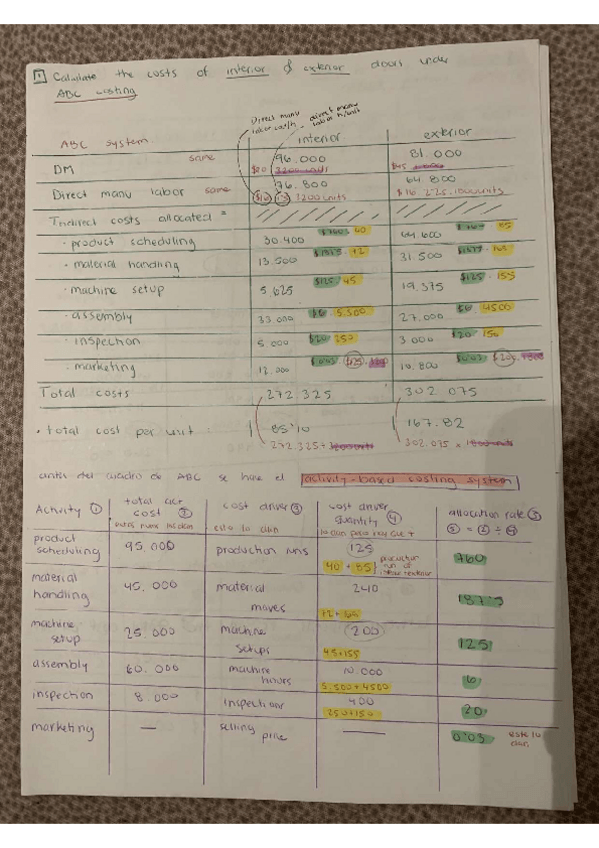 1 Calculate the costs of interior & exterior doors under
ABC costing
Direct manu labor cost/h
direct manu labor h/unit
ABC system interior exterior
DM same 96.000 81.000
$30 3200 units $45
Direct manu labor same 76.800 64.800
$16 1200 units $16 2.25.1800 units
Indirect costs allocated =
· product scheduling 30.400 $760 · 40 64.600 $760 · 85
· material handling 13.500 $187'5 · 72 31.500 $187'5 · 168
· machine setup 5.625 $125 · 45 19.375 $125 · 155
· assembly 33.000 $6 · 5.500 27.000 $6 · 4500
· inspection 5.000 $20 · 250 3.000 $20 · 150
· marketing 12.000 $0'03 · $125 · 10.800 $0'03 · $200 · 1800
Total costs 272.325 302.075
· total cost per unit : 85'10 167.82
272.325 ÷ 3200 units 302.075 × 1800 units
antes del cuadro de ABC se hace el activity-based costing system
Activity 1 total act cost 2 cost driver 3 cost driver quantity 4 allocation rate 5
5 = 2 ÷ 4
esto lo dan
product scheduling 95.000 production runs 125 760
40 + 85 production run of interior + exterior
material handling 45.000 material moves 240 187'5
72 + 168
machine setup 25.000 machine setups 200 125
45 + 155
assembly 60.000 machine hours 10.000 6
5.500 + 4500
inspection 8.000 inspections 400 20
250 + 150
marketing — selling price — 0'03 este lo dan